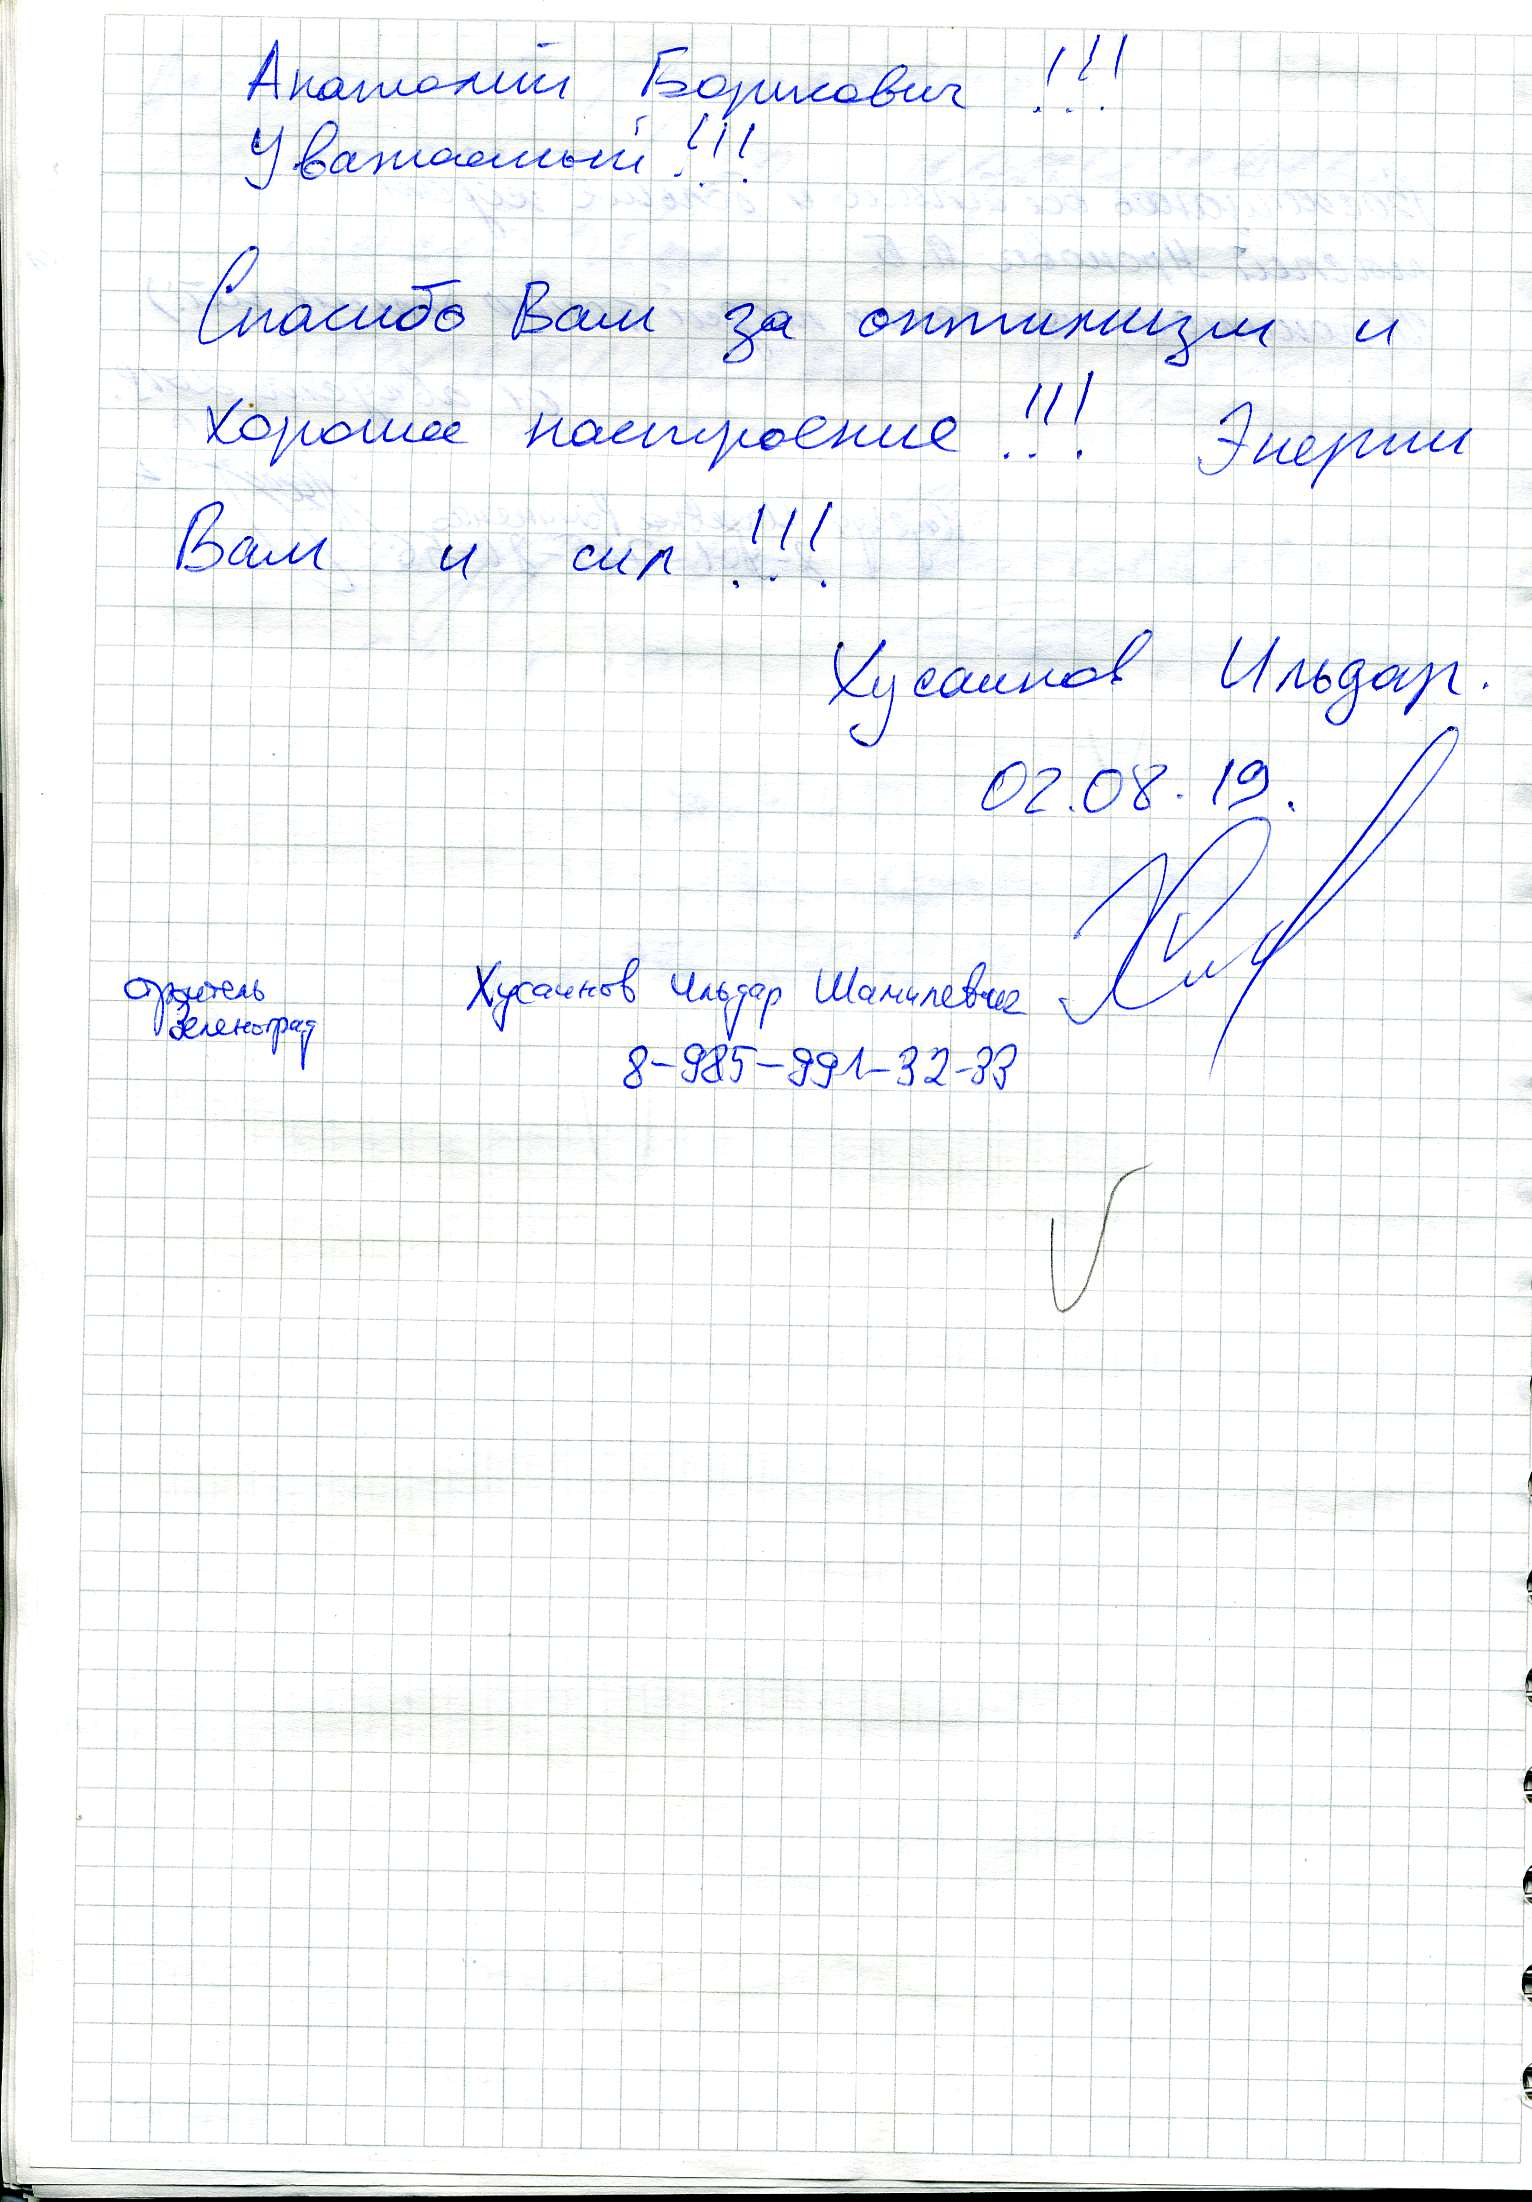 Анатолий Борисович !!!
Уважаемый !!!
Спасибо Вам за оптимизм и
хорошее настроение !!! Энергии
Вам и сил !!!
Хусаинов Ильдар.
02.08.19.
строитель Хусаинов Ильдар Шамилевич
Зеленоград
8-985-991-32-33